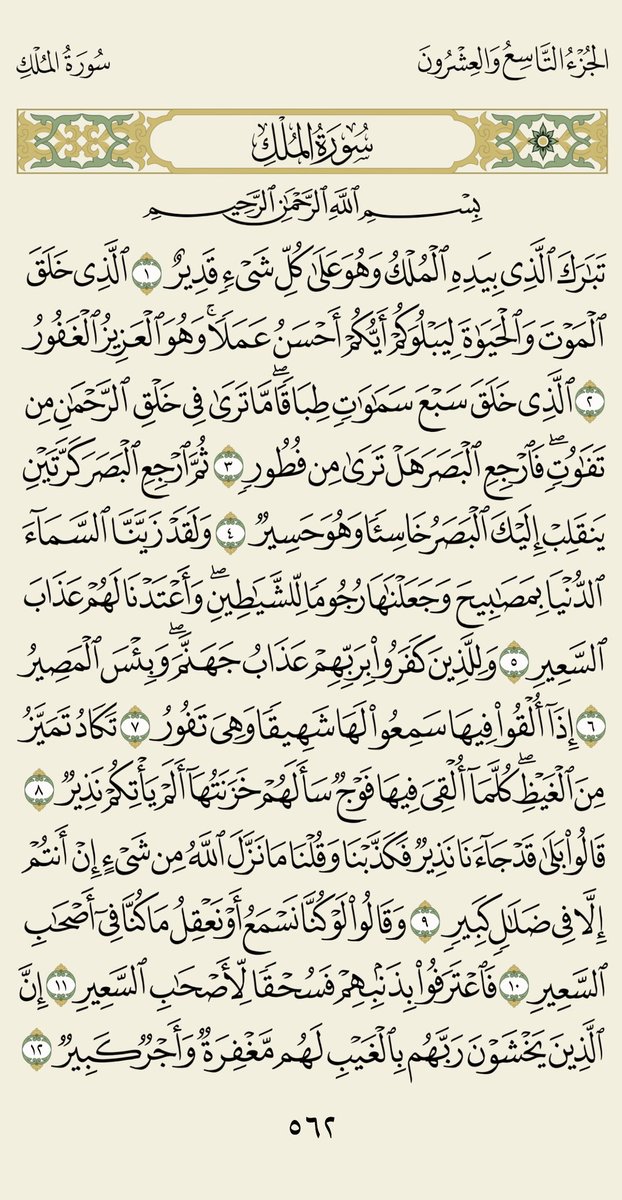 الجُزْءُ التَّاسِعُ وَالعِشْرُونَ
سُورَةُ المُلْكِ
سُورَةُ المُلْكِ
بِسْمِ ٱللَّهِ ٱلرَّحْمَٰنِ ٱلرَّحِيمِ
تَبَٰرَكَ ٱلَّذِى بِيَدِهِ ٱلْمُلْكُ وَهُوَ عَلَىٰ كُلِّ شَىْءٍ قَدِيرٌ ١ ٱلَّذِى خَلَقَ
ٱلْمَوْتَ وَٱلْحَيَوٰةَ لِيَبْلُوَكُمْ أَيُّكُمْ أَحْسَنُ عَمَلًا ۚ وَهُوَ ٱلْعَزِيزُ ٱلْغَفُورُ
٢ ٱلَّذِى خَلَقَ سَبْعَ سَمَٰوَٰتٍ طِبَاقًا ۖ مَّا تَرَىٰ فِى خَلْقِ ٱلرَّحْمَٰنِ مِن
تَفَٰوُتٍ ۖ فَٱرْجِعِ ٱلْبَصَرَ هَلْ تَرَىٰ مِن فُطُورٍ ٣ ثُمَّ ٱرْجِعِ ٱلْبَصَرَ كَرَّتَيْنِ
يَنقَلِبْ إِلَيْكَ ٱلْبَصَرُ خَاسِئًا وَهُوَ حَسِيرٌ ٤ وَلَقَدْ زَيَّنَّا ٱلسَّمَآءَ
ٱلدُّنْيَا بِمَصَٰبِيحَ وَجَعَلْنَٰهَا رُجُومًا لِّلشَّيَٰطِينِ ۖ وَأَعْتَدْنَا لَهُمْ عَذَابَ
ٱلسَّعِيرِ ٥ وَلِلَّذِينَ كَفَرُوا۟ بِرَبِّهِمْ عَذَابُ جَهَنَّمَ ۖ وَبِئْسَ ٱلْمَصِيرُ
٦ إِذَآ أُلْقُوا۟ فِيهَا سَمِعُوا۟ لَهَا شَهِيقًا وَهِىَ تَفُورُ ٧ تَكَادُ تَمَيَّزُ
مِنَ ٱلْغَيْظِ ۖ كُلَّمَآ أُلْقِىَ فِيهَا فَوْجٌ سَأَلَهُمْ خَزَنَتُهَآ أَلَمْ يَأْتِكُمْ نَذِيرٌ ٨
قَالُوا۟ بَلَىٰ قَدْ جَآءَنَا نَذِيرٌ فَكَذَّبْنَا وَقُلْنَا مَا نَزَّلَ ٱللَّهُ مِن شَىْءٍ إِنْ أَنتُمْ
إِلَّا فِى ضَلَٰلٍ كَبِيرٍ ٩ وَقَالُوا۟ لَوْ كُنَّا نَسْمَعُ أَوْ نَعْقِلُ مَا كُنَّا فِىٓ أَصْحَٰبِ
ٱلسَّعِيرِ ١٠ فَٱعْتَرَفُوا۟ بِذَنۢبِهِمْ فَسُحْقًا لِّأَصْحَٰبِ ٱلسَّعِيرِ ١١ إِنَّ
ٱلَّذِينَ يَخْشَوْنَ رَبَّهُم بِٱلْغَيْبِ لَهُم مَّغْفِرَةٌ وَأَجْرٌ كَبِيرٌ ١٢
٥٦٢